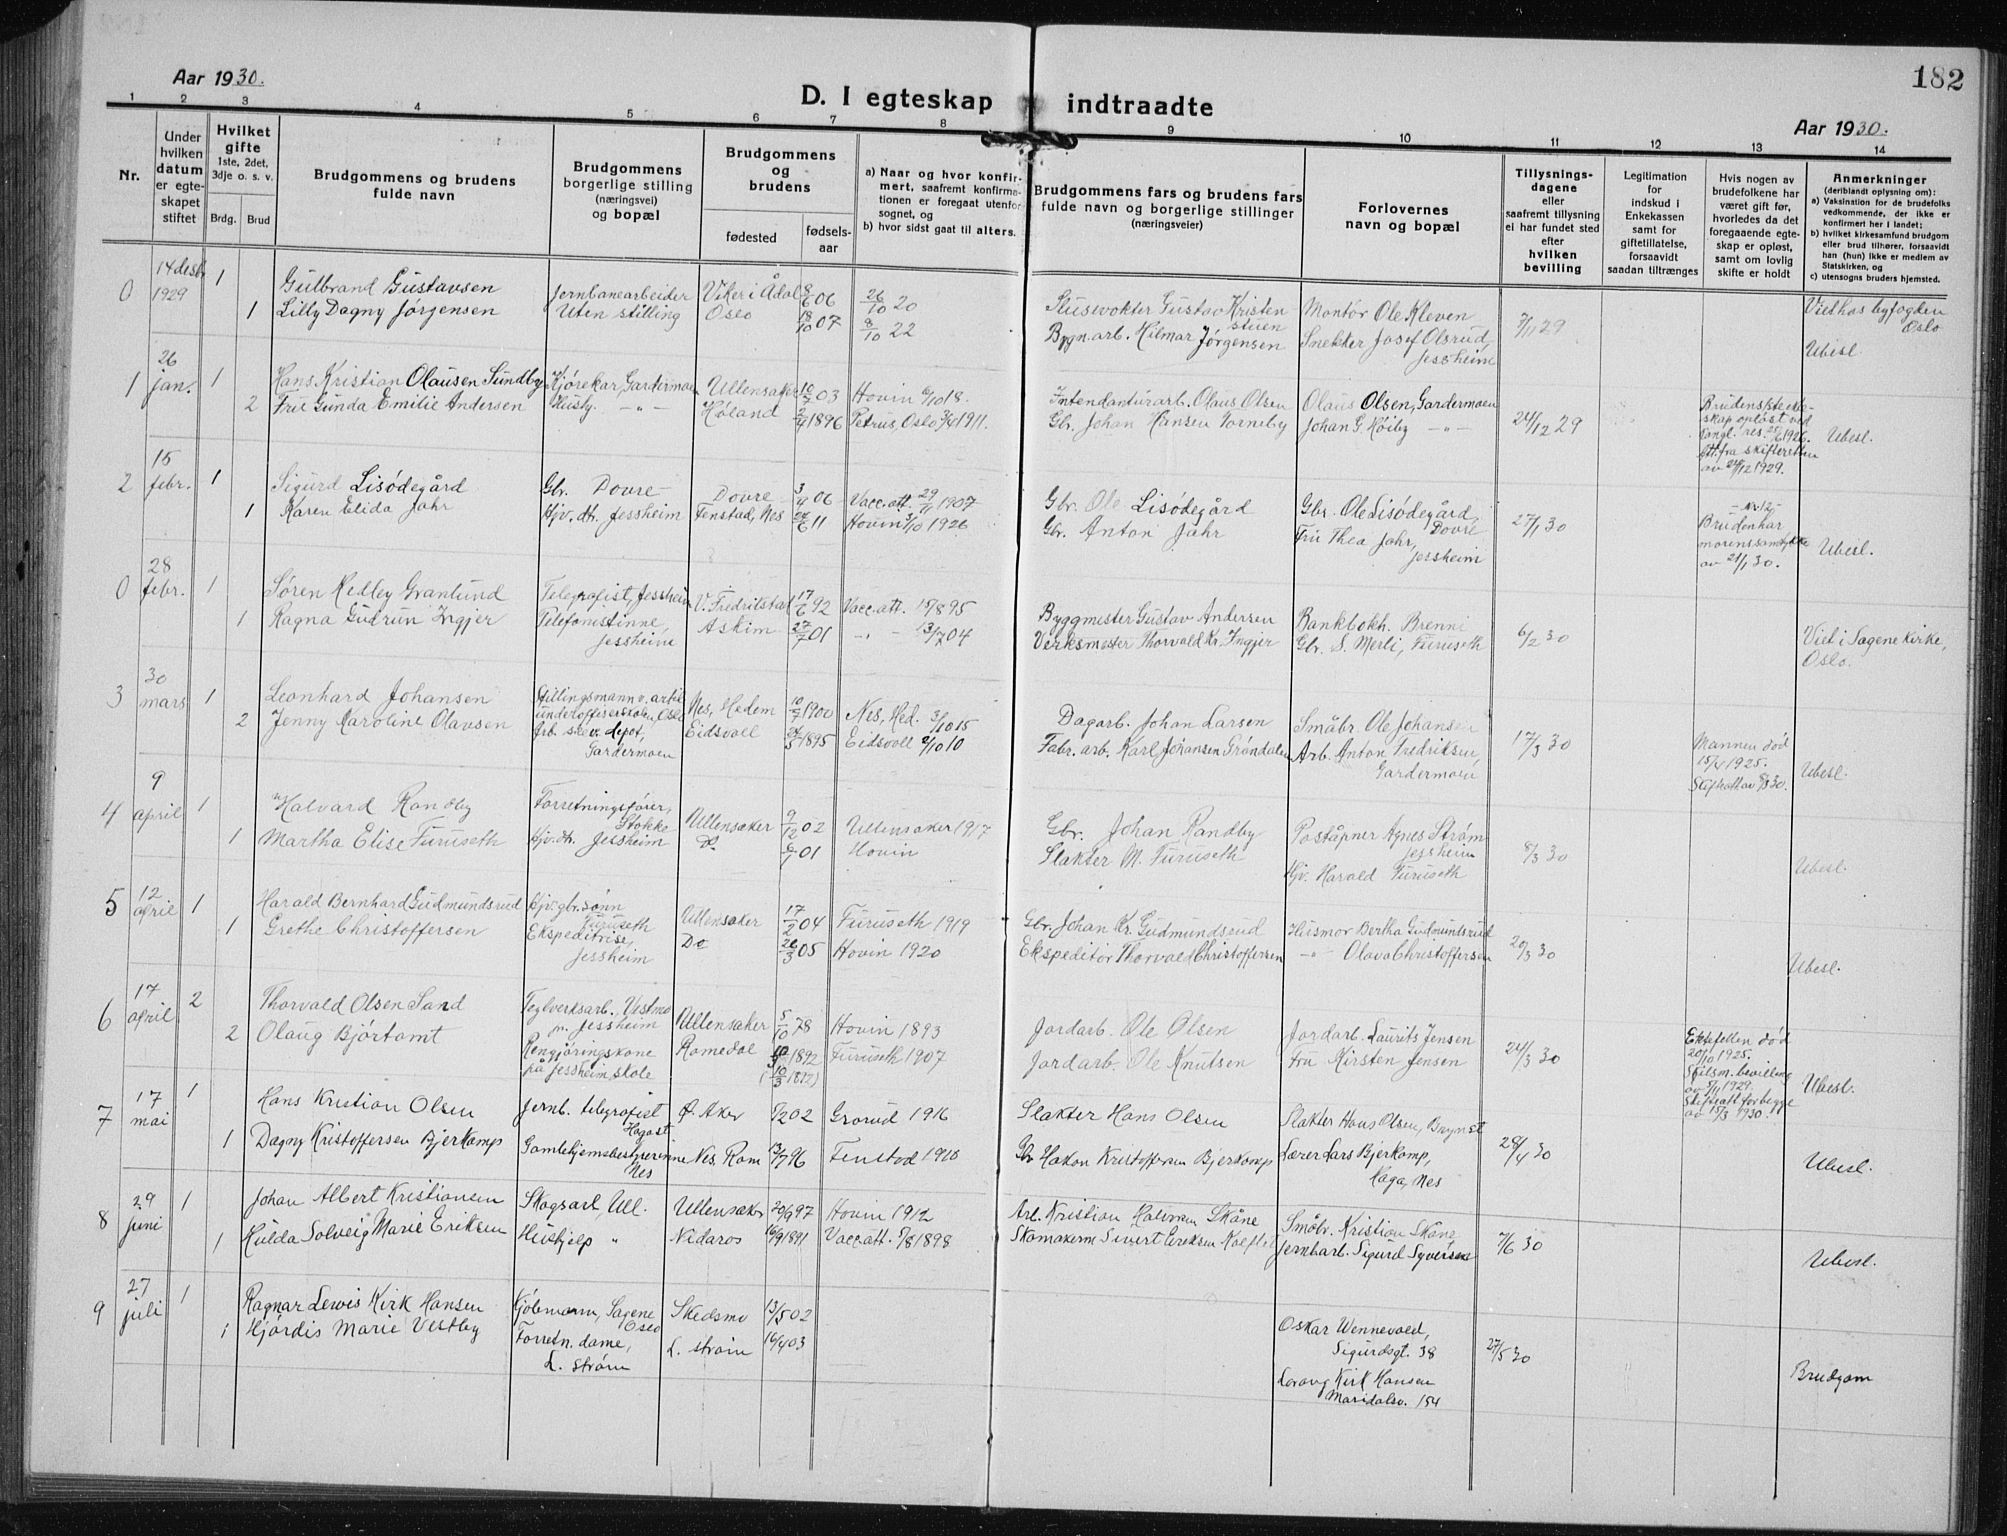 182
Aar 1930.
D. I egteskap indtraadte
Aar 1930.
1 2 3 4 5 6 7 8 9 10 11 12 13 14
Nr.
Under
hvilken
datum
er egte-
skapet
stiftet
Hvilket
gifte
1ste, 2det,
3dje o. s. v.
Brdg. Brud
Brudgommens og brudens
fulde navn
Brudgommens
borgerlige stilling
(næringsvei)
og bopæl
Brudgommens
og
brudens
fødested
fødsels-
aar
a) Naar og hvor konfir-
mert, saafremt konfirma-
tionen er foregaat utenfor
sognet, og
b) hvor sidst gaat til alters.
Brudgommens fars og brudens fars
fulde navn og borgerlige stillinger
(næringsveier)
Forlovernes
navn og bopæl
Tillysnings-
dagene
eller
saafremt tillysning
ei har fundet sted
efter
hvilken
bevilling
Legitimation
for
indskud i
Enkekassen
samt for
giftetillatelse,
forsaavidt
saadan tiltrænges
Hvis nogen av
brudefolkene har
været gift før,
hvorledes da det
foregaaende egte-
skap er opløst,
samt om lovlig
skifte er holdt
Anmerkninger
(deriblandt oplysning om):
a) Vaksination for de brudefolks
vedkommende, der ikke er
konfirmert her i landet;
b) hvilket kirkesamfund brudgom
eller brud tilhører, forsaavidt
han (hun) ikke er medlem av
Statskirken, og
c) utensogns bruders hjemsted.
0 14 desbr. 1929 1 Gulbrand Gustavsen Jernbanearbeider Viker i Ådal 8/6 06 26/10 20 Slusevokter Gustav Kristen
stuen Montør Ole Kleven 7/11 29 Viet hos byfogden
Oslo
1 Lilly Dagny Jørgensen Uten stilling Oslo 18/10 07 8/10 22 Bygn.arb. Hilmar Jørgensen Snekker Josef Olsrud,
Jessheim Ubesl.
1 26 jan. 1 Hans Kristian Olausen Sundby Kjørekar, Gardermoen Ullensaker 10/7 03 Hovin 6/10 18. Intendanturarb. Olaus Olsen Olaus Olsen, Gardermoen 24/12 29
2 Frie Gunda Emilie Andersen Husby. -"- Høland 2/4 1896 Petrus, Oslo 3/4 1911. Gbr. Johan Hansen Torneby Johan G. Høiby -"-
Brudens 1ste ekte-
skap opløst ved
kongl. res. 25/6 1926.
Att. fra skifteretten
av 24/12 1929. Ubesl.
2 15 febr. 1 Sigurd Lisødegård Gbr. Dovre Dovre 3/9 06 Vacc.att. 29/11 1907 Gbr. Ole Lisødegård Gbr. Ole Lisødegård,
Dovre 27/1 30
1 Karen Elida Jahr Hjv. dtr. Jessheim Fenstad, Nes 24/6 11 Hovin 3/10 1926 Gbr. Anton Jahr Fru Thea Jahr,
Jessheim
- Nr. 12 -
Bruden har
morens samtykke
av 21/1 30. Ubesl.
0 28 febr. 1 Søren Hedley Granlund Telegrafist, Jessheim V. Fredrikstad 17/6 92 Vacc.att. 15/8 95 Byggmester Gustav Andersen Bankbokh. Brenni 6/2 30
1 Ragna Gudrun Ingjer Telefonistinne,
Jessheim Askim 27/7 01 -"- 13/7 04 Verksmester Thorvald Kr. Ingjer Gbr. S. Merli, Furuseth Viet i Sagene kirke,
Oslo.
3 30 mars 1 Leonhard Johansen Stillingsmann v. artil.
underoffiserskolen, Oslo Nes, Hedem 10/7 1900 Nes, Hed. 3/10 15 Dagarb. Johan Larsen Småbr. Ole Johansen 17/3 30
2 Jenny Karoline Olavsen Arb. ske v. depot,
Gardermoen Eidsvoll 24/3 1895 Eidsvoll 2/10 10 Fabr. arb. Karl Johansen Grøndalen Arb. Anton Fredriksen,
Gardermoen
Mannen død
15/4 1925.
Skifteatt av 8/3 30. Ubesl.
4 9 april 1 Halvard Randby Forretningsfører,
Stokke Ullensaker 9/12 02 Ullensaker 1917 Gbr. Johan Randby Poståpner Agnes Strøm
Jessheim 8/3 30
1 Martha Elise Furuseth Hjv. dtr. Jessheim Do 6/1 01 Hovin Slakter M. Furuseth Hjv. Harald Furuseth Ubesl.
5 12 april 1 Harald Bernhard Gudmundsrud Hjv. gbr. sønn
Furuseth Ullensaker 17/2 04 Furuseth 1919 Gbr. Johan Kr. Gudmundsrud Husmor Bertha Gudmundsrud 20/3 30
1 Grethe Christoffersen Ekspeditrise,
Jessheim Do 26/3 05 Hovin 1920 Ekspeditør Thorvald Christoffersen -"- Olava Christoffersen Ubesl.
6 17 april 2 Thorvald Olsen Sand Teglverksarb. Vestmo
pr. Jessheim Ullensaker 5/10 78 Hovin 1893 Jordarb. Ole Olsen Jordarb. Laurits Jensen 24/3 30
2 Olaug Bjørtomt Rengjøringskone
på Jessheim skole Romedal 10/3 1892
(10/3 1892) Furuseth 1907 Jordarb. Ole Knutsen Fru Kirsten Jensen
Ektefellen død
20/10 1925.
Skilsm. bevilling
av 5/11 1929.
Skifteatt for begge
av 15/3 1930. Ubesl.
7 17 mai 1 Hans Kristian Olsen Jernb. telegrafist
Hagast. Ø. Aker 6/2 02 Grorud 1916 Slakter Hans Olsen Slakter Hans Olsen, Brynst 28/4 30
1 Dagny Kristoffersen Bjerkamp Gamlehjemsbestyrerinne
Nes Nes, Rom 13/7 96 Fenstad 1910 Gbr Hakon Kristoffersen Bjerkamp Lærer Lars Bjerkamp,
Haga, Nes Ubesl.
8 29 juni 1 Johan Albert Kristiansen Skogsarb, Ull. Ullensaker 20/9 97 Hovin 1912 Arb. Kristian Halvorsen Skåne Småbr. Kristian Skåne 7/6 30
1 Hulda Solveig Marie Eriksen Hushjelp " Nidaros 16/9 1891 Vacc att. 9/8 1898 Skomakerm Sivert Eriksen Jernbarb. Sigurd Syversen Ubesl.
9 27 juli 1 Ragnar Lewis Kirk Hansen Kjøbmann, Sagene
Oslo Skedsmo 13/5 02 Oskar Wennevold,
Sigurdsgt. 38 27/5 30
1 Hjørdis Marie Vestby Forretn. dame,
L. strøm L. strøm 16/4 03 Kirk Hansen
Maridalsv. 154 Brudgom